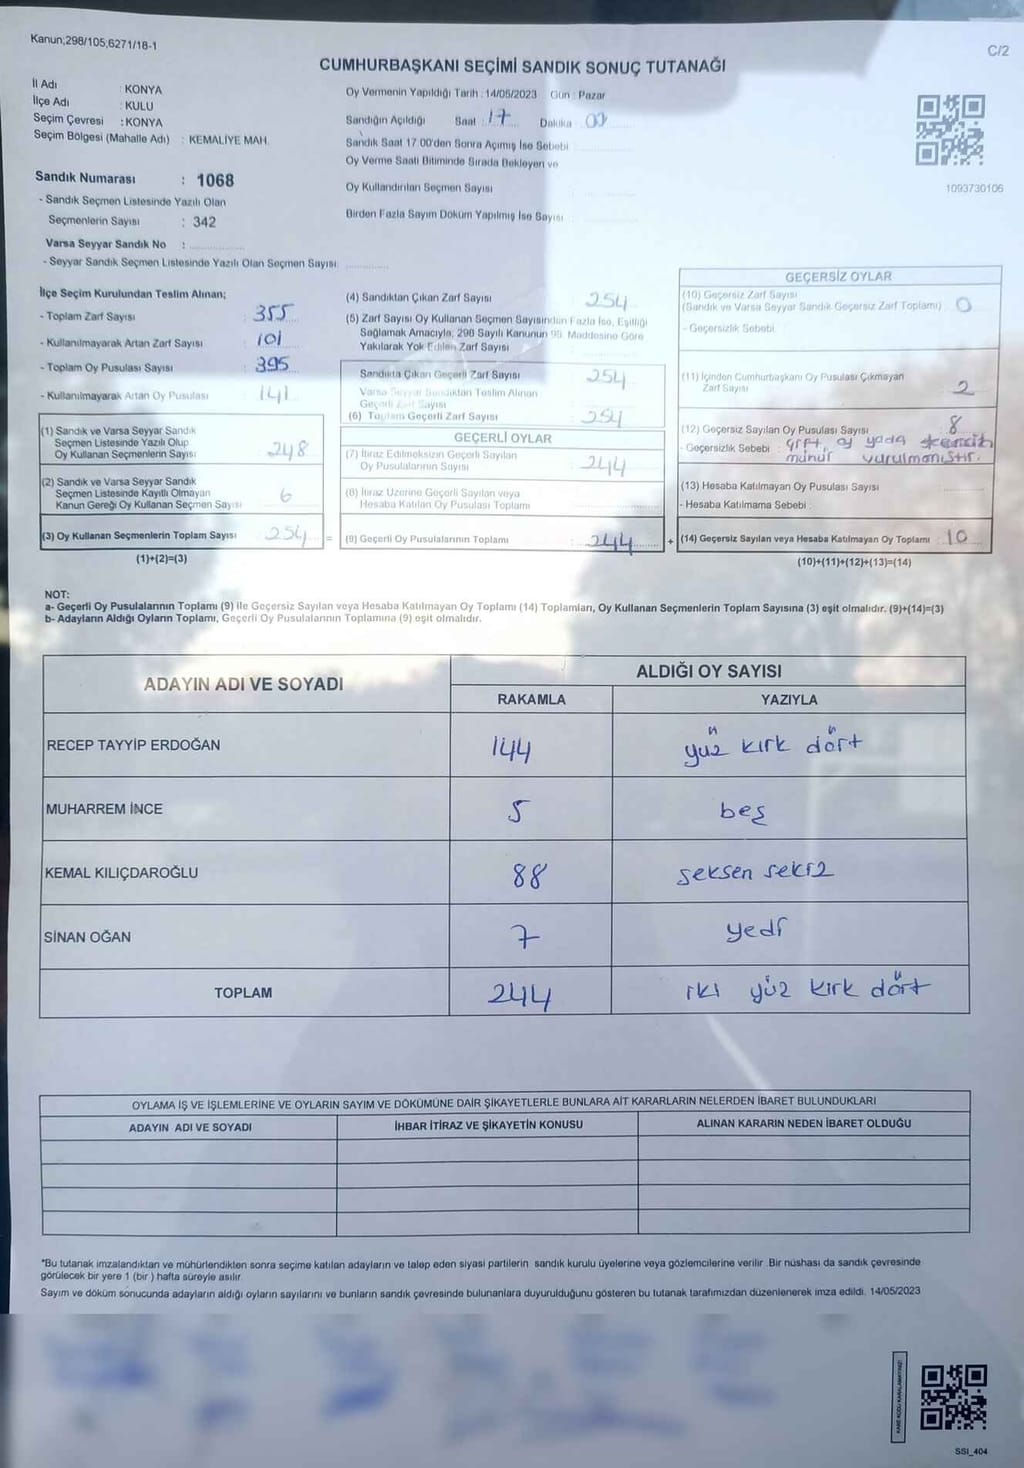 Kanun;298/105;6271/18-1
C/2
CUMHURBAŞKANI SEÇİMİ SANDIK SONUÇ TUTANAĞI
İl Adı : KONYA
İlçe Adı : KULU
Seçim Çevresi : KONYA
Seçim Bölgesi (Mahalle Adı) : KEMALİYE MAH.
Sandık Numarası : 1068
- Sandık Seçmen Listesinde Yazılı Olan
Seçmenlerin Sayısı : 342
Varsa Seyyar Sandık No :
- Seyyar Sandık Seçmen Listesinde Yazılı Olan Seçmen Sayısı:
Oy Vermenin Yapıldığı Tarih : 14/05/2023 Gün : Pazar
Sandığın Açıldığı Saat : 17 Dakika : 00
Sandık Saat 17.00'den Sonra Açımış İse Sebebi
Oy Verme Saati Bitiminde Sırada Bekleyen ve
Oy Kullandırılan Seçmen Sayısı
Birden Fazla Sayım Döküm Yapılmış İse Sayısı :
1093730106
İlçe Seçim Kurulundan Teslim Alınan;
- Toplam Zarf Sayısı : 355
- Kullanılmayarak Artan Zarf Sayısı : 101
- Toplam Oy Pusulası Sayısı : 395
- Kullanılmayarak Artan Oy Pusulası : 141
(1) Sandık ve Varsa Seyyar Sandık
Seçmen Listesinde Yazılı Olup
Oy Kullanan Seçmenlerin Sayısı : 248
(2) Sandık ve Varsa Seyyar Sandık
Seçmen Listesinde Kayıtlı Olmayan
Kanun Gereği Oy Kullanan Seçmen Sayısı 6
(3) Oy Kullanan Seçmenlerin Toplam Sayısı 254 =
(1)+(2)=(3)
(4) Sandıktan Çıkan Zarf Sayısı 254
(5) Zarf Sayısı Oy Kullanan Seçmen Sayısından Fazla İse, Eşitliği
Sağlamak Amacıyla, 298 Sayılı Kanunun 98. Maddesine Göre
Yakılarak Yok Edilen Zarf Sayısı
Sandıkta Çıkan Geçerli Zarf Sayısı 254
Varsa Seyyar Sandıktan Teslim Alınan
Geçerli Zarf Sayısı
(6) Toplam Geçerli Zarf Sayısı : 254
GEÇERLİ OYLAR
(7) İtiraz Edilmeksizin Geçerli Sayılan
Oy Pusulalarının Sayısı : 244
(8) İtiraz Üzerine Geçerli Sayılan veya
Hesaba Katılan Oy Pusulası Toplamı
(9) Geçerli Oy Pusulalarının Toplamı : 244 +
GEÇERSİZ OYLAR
(10) Geçersiz Zarf Sayısı
(Sandık ve Varsa Seyyar Sandık Geçersiz Zarf Toplamı) : 0
- Geçersizlik Sebebi
(11) İçinden Cumhurbaşkanı Oy Pusulası Çıkmayan
Zarf Sayısı 2
(12) Geçersiz Sayılan Oy Pusulası Sayısı : 8
- Geçersizlik Sebebi : oy yada
mühür vurulmamıştır.
(13) Hesaba Katılmayan Oy Pusulası Sayısı
- Hesaba Katılmama Sebebi :
(14) Geçersiz Sayılan veya Hesaba Katılmayan Oy Toplamı : 10
(10)+(11)+(12)+(13)=(14)
NOT:
a- Geçerli Oy Pusulalarının Toplamı (9) ile Geçersiz Sayılan veya Hesaba Katılmayan Oy Toplamı (14) Toplamları, Oy Kullanan Seçmenlerin Toplam Sayısına (3) eşit olmalıdır. (9)+(14)=(3)
b- Adayların Aldığı Oyların Toplamı, Geçerli Oy Pusulalarının Toplamına (9) eşit olmalıdır.
ADAYIN ADI VE SOYADI
ALDIĞI OY SAYISI
RAKAMLA YAZIYLA
RECEP TAYYİP ERDOĞAN 144 yüz kırk dört
MUHARREM İNCE 5 beş
KEMAL KILIÇDAROĞLU 88 seksen sekiz
SİNAN OĞAN 7 yedi
TOPLAM 244 iki yüz kırk dört
OYLAMA İŞ VE İŞLEMLERİNE VE OYLARIN SAYIM VE DÖKÜMÜNE DAİR ŞİKAYETLERLE BUNLARA AİT KARARLARIN NELERDEN İBARET BULUNDUKLARI
ADAYIN ADI VE SOYADI İHBAR İTİRAZ VE ŞİKAYETİN KONUSU ALINAN KARARIN NEDEN İBARET OLDUĞU
*Bu tutanak imzalandıktan ve mühürlendikten sonra seçime katılan adayların ve talep eden siyasi partilerin sandık kurulu üyelerine veya gözlemcilerine verilir. Bir nüshası da sandık çevresinde
görülecek bir yere 1 (bir ) hafta süreyle asılır.
Sayım ve döküm sonucunda adayların aldığı oyların sayılarını ve bunların sandık çevresinde bulunanlara duyurulduğunu gösteren bu tutanak tarafımızdan düzenlenerek imza edildi. 14/05/2023
KARE KODU KARALAMAYINIZ!
SSI_404